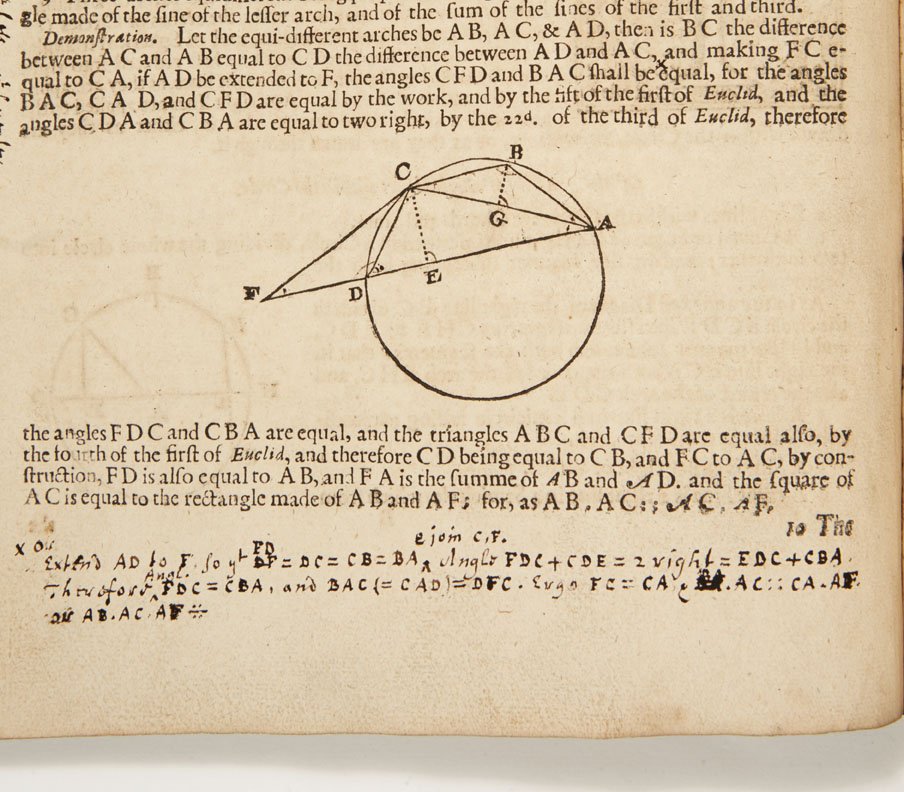 gle made of the sine of the lesser arch, and of the sum of the sines of the first and third.
Demonstration. Let the equi-different arches be A B, A C, & A D, then is B C the difference
between A C and A B equal to C D the difference between A D and A C, and making F C e-
qual to C A, if A D be extended to F, the angles C F D and B A C shall be equal, for the angles
B A C, C A D, and C F D are equal by the work, and by the fift of the first of Euclid, and the
angles C D A and C B A are equal to two right, by the 22d. of the third of Euclid, therefore
B
C
G
A
E
F
D
the angles F D C and C B A are equal, and the triangles A B C and C F D are equal also, by
the fourth of the first of Euclid, and therefore C D being equal to C B, and F C to A C, by con-
struction, F D is also equal to A B, and F A is the summe of A B and A D. and the square of
A C is equal to the rectangle made of A B and A F; for, as A B, A C : ; A C, A F.
10 The
& join C,F.
x Or
FD
Extend AD to F so yt = DC = CB = BA, Angle FDC + CDE = 2 right = EDC + CBA.
Angl.
Therefore FDC = CBA, and BAC (= CAD) = DFC. Ergo FC = CA, AC :: CA. AF
AB. AC. AF